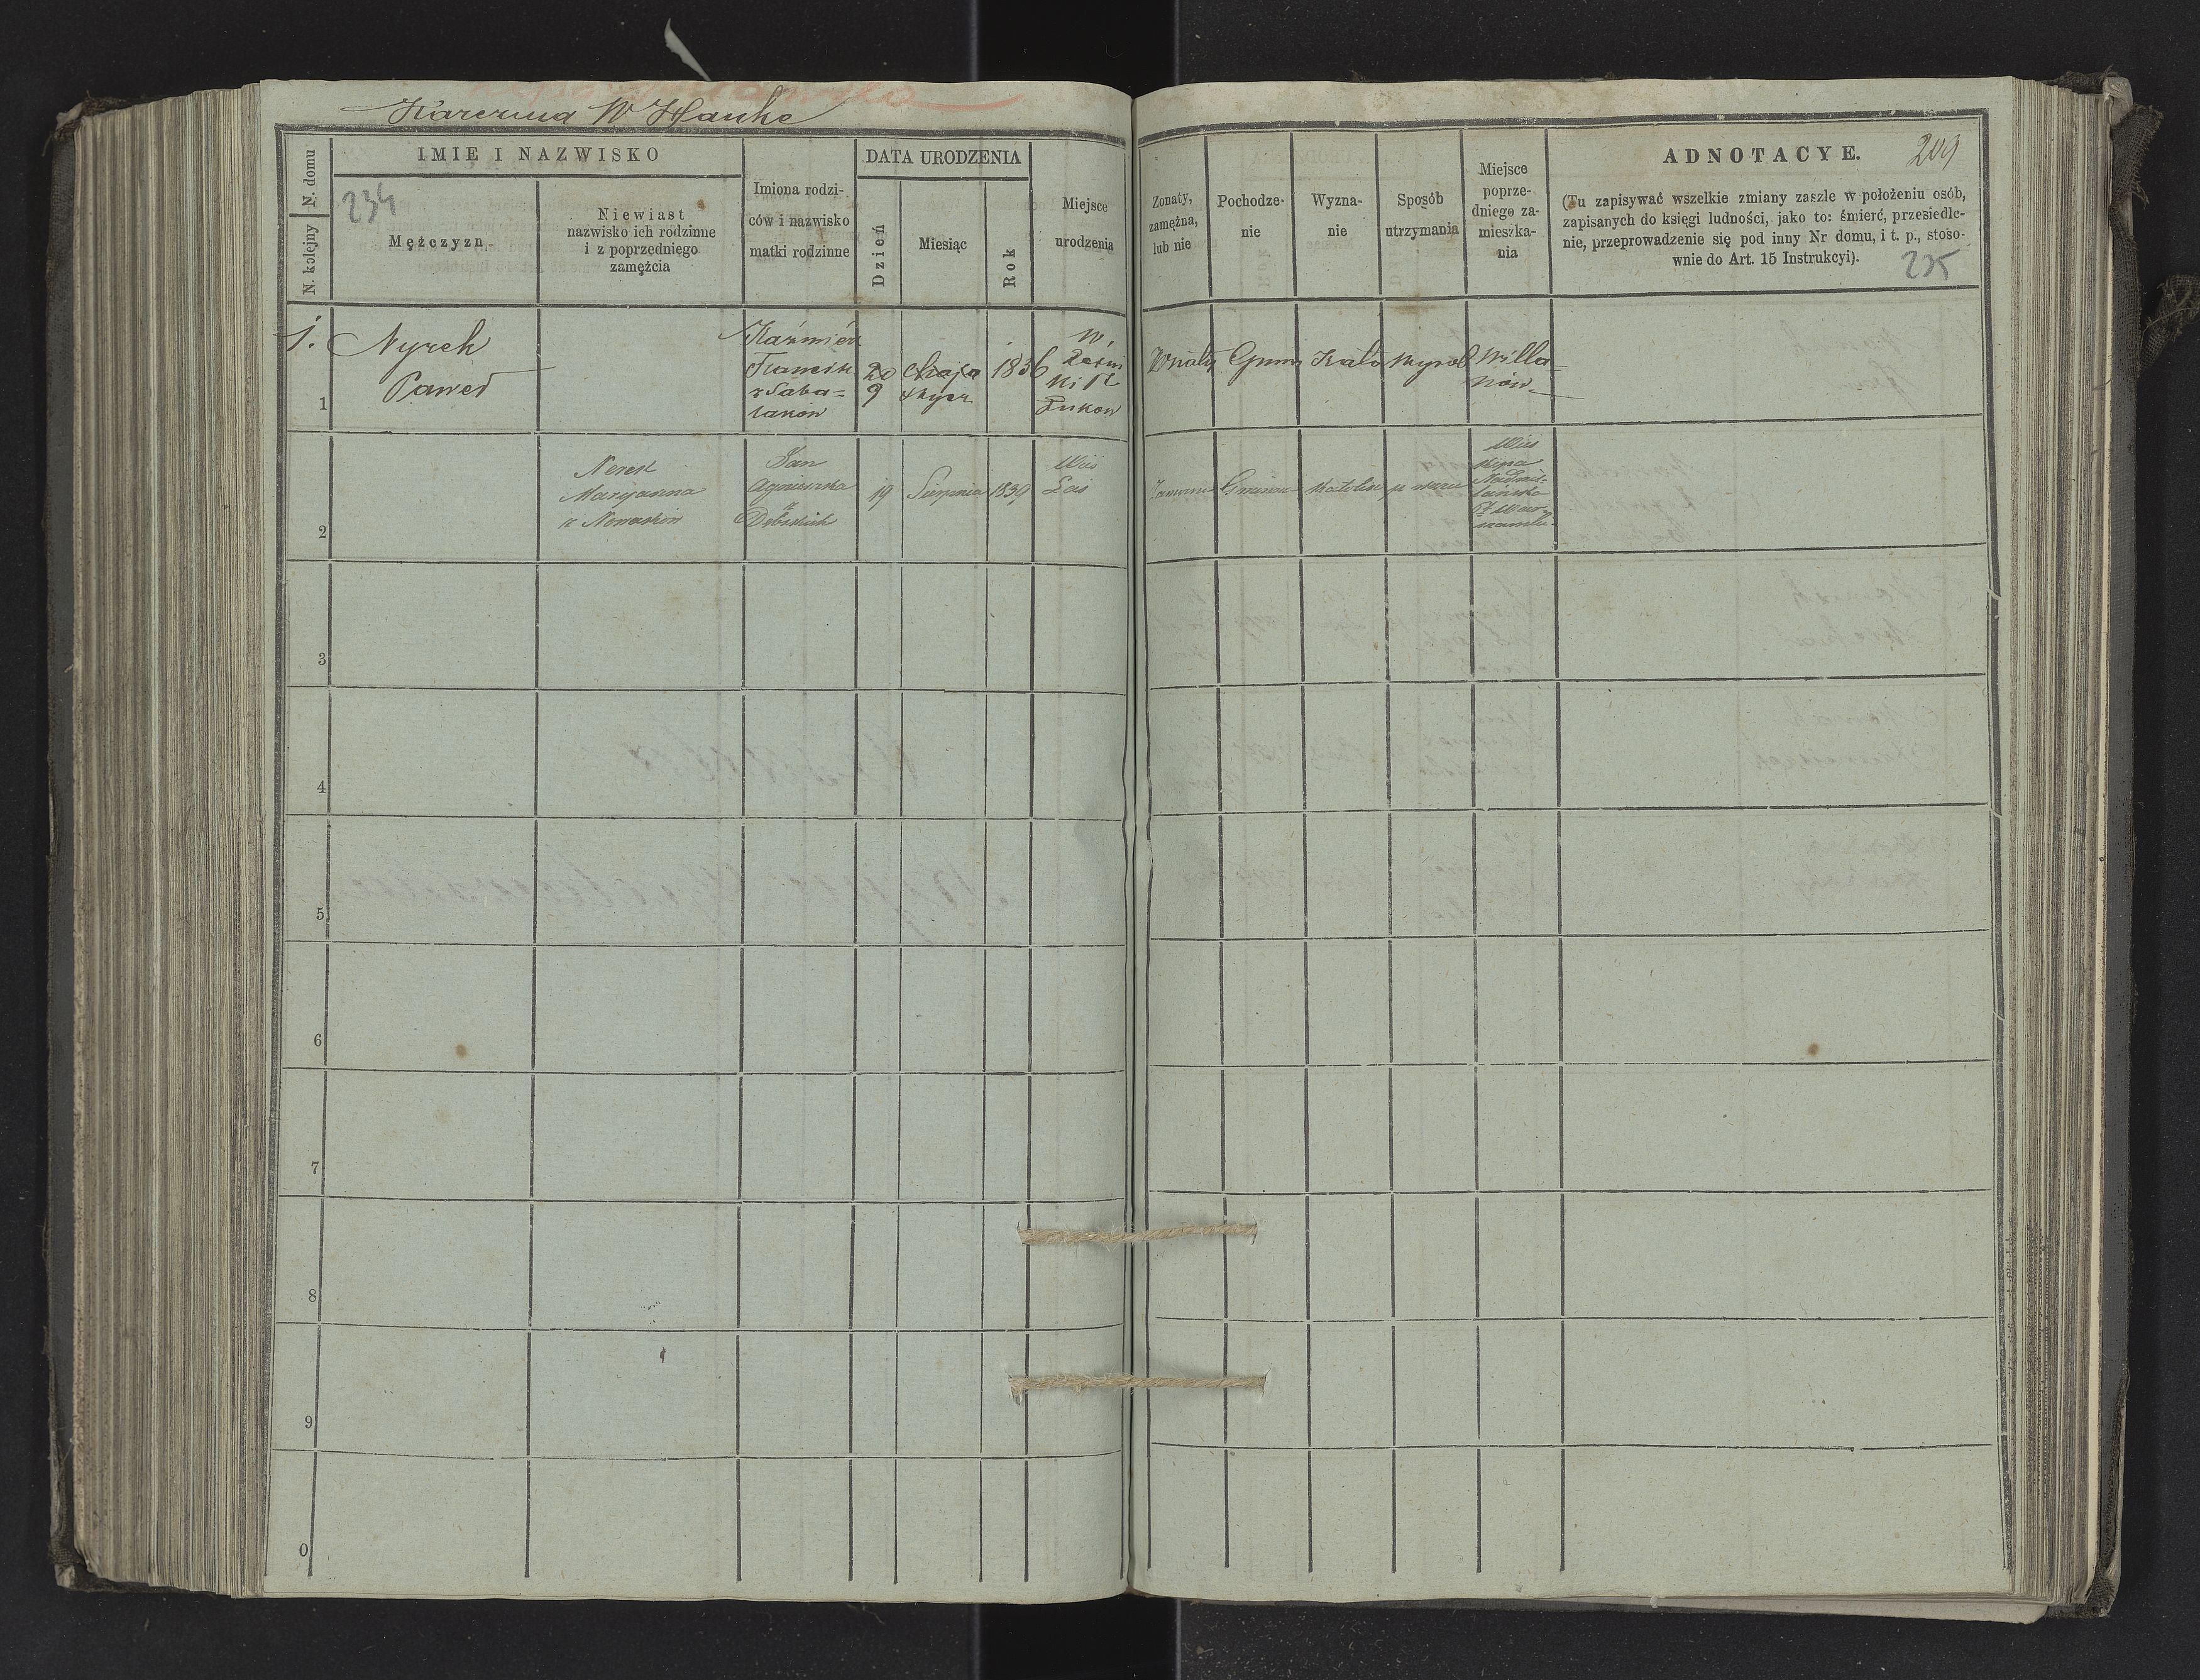 Karczma W Hauke
N. domu
N. kolejny
IMIE I NAZWISKO
234
Mężczyzn
Niewiast
nazwisko ich rodzinne
i z poprzedniego
zamężcia
Imiona rodzi-
ców i nazwisko
matki rodzinne
DATA URODZENIA
Dzień
Miesiąc
Rok
Miejsce
urodzenia
Żonaty,
zamężna,
lub nie
Pochodze-
nie
Wyzna-
nie
Sposób
utrzymania
Miejsce
poprze-
dniego za-
mieszka-
nia
ADNOTACYE.
209
(Tu zapisywać wszelkie zmiany zaszłe w położeniu osób,
zapisanych do księgi ludności, jako to: śmierć, przesiedle-
nie, przeprowadzenie się pod inny Nr domu, i t. p., stoso-
wnie do Art. 15 Instrukcyi).
235
1.
1
Nyrek
Paweł
Kaźmierz
z Saba-
laków
20
9
Maja
1836
W.
Łukow
Żonaty
Gmin
Kato
Wyrob
Willa-
nów
2
Nerek
Maryanna
z Nowaków
Jan
Agnieszka
z
Dębskich
19
Sierpnia
1839
Wieś
Las
Gminne
Katolic
Wieś
Kępa
3
4
5
6
7
8
9
0